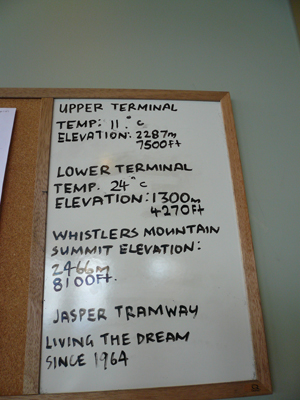 UPPER TERMINAL
TEMP: 11°C
ELEVATION: 2287m
7500ft
LOWER TERMINAL
TEMP. 24°C
ELEVATION: 1300m
4270ft
WHISTLERS MOUNTAIN
SUMMIT ELEVATION:
2466m
8100ft.
JASPER TRAMWAY
LIVING THE DREAM
SINCE 1964